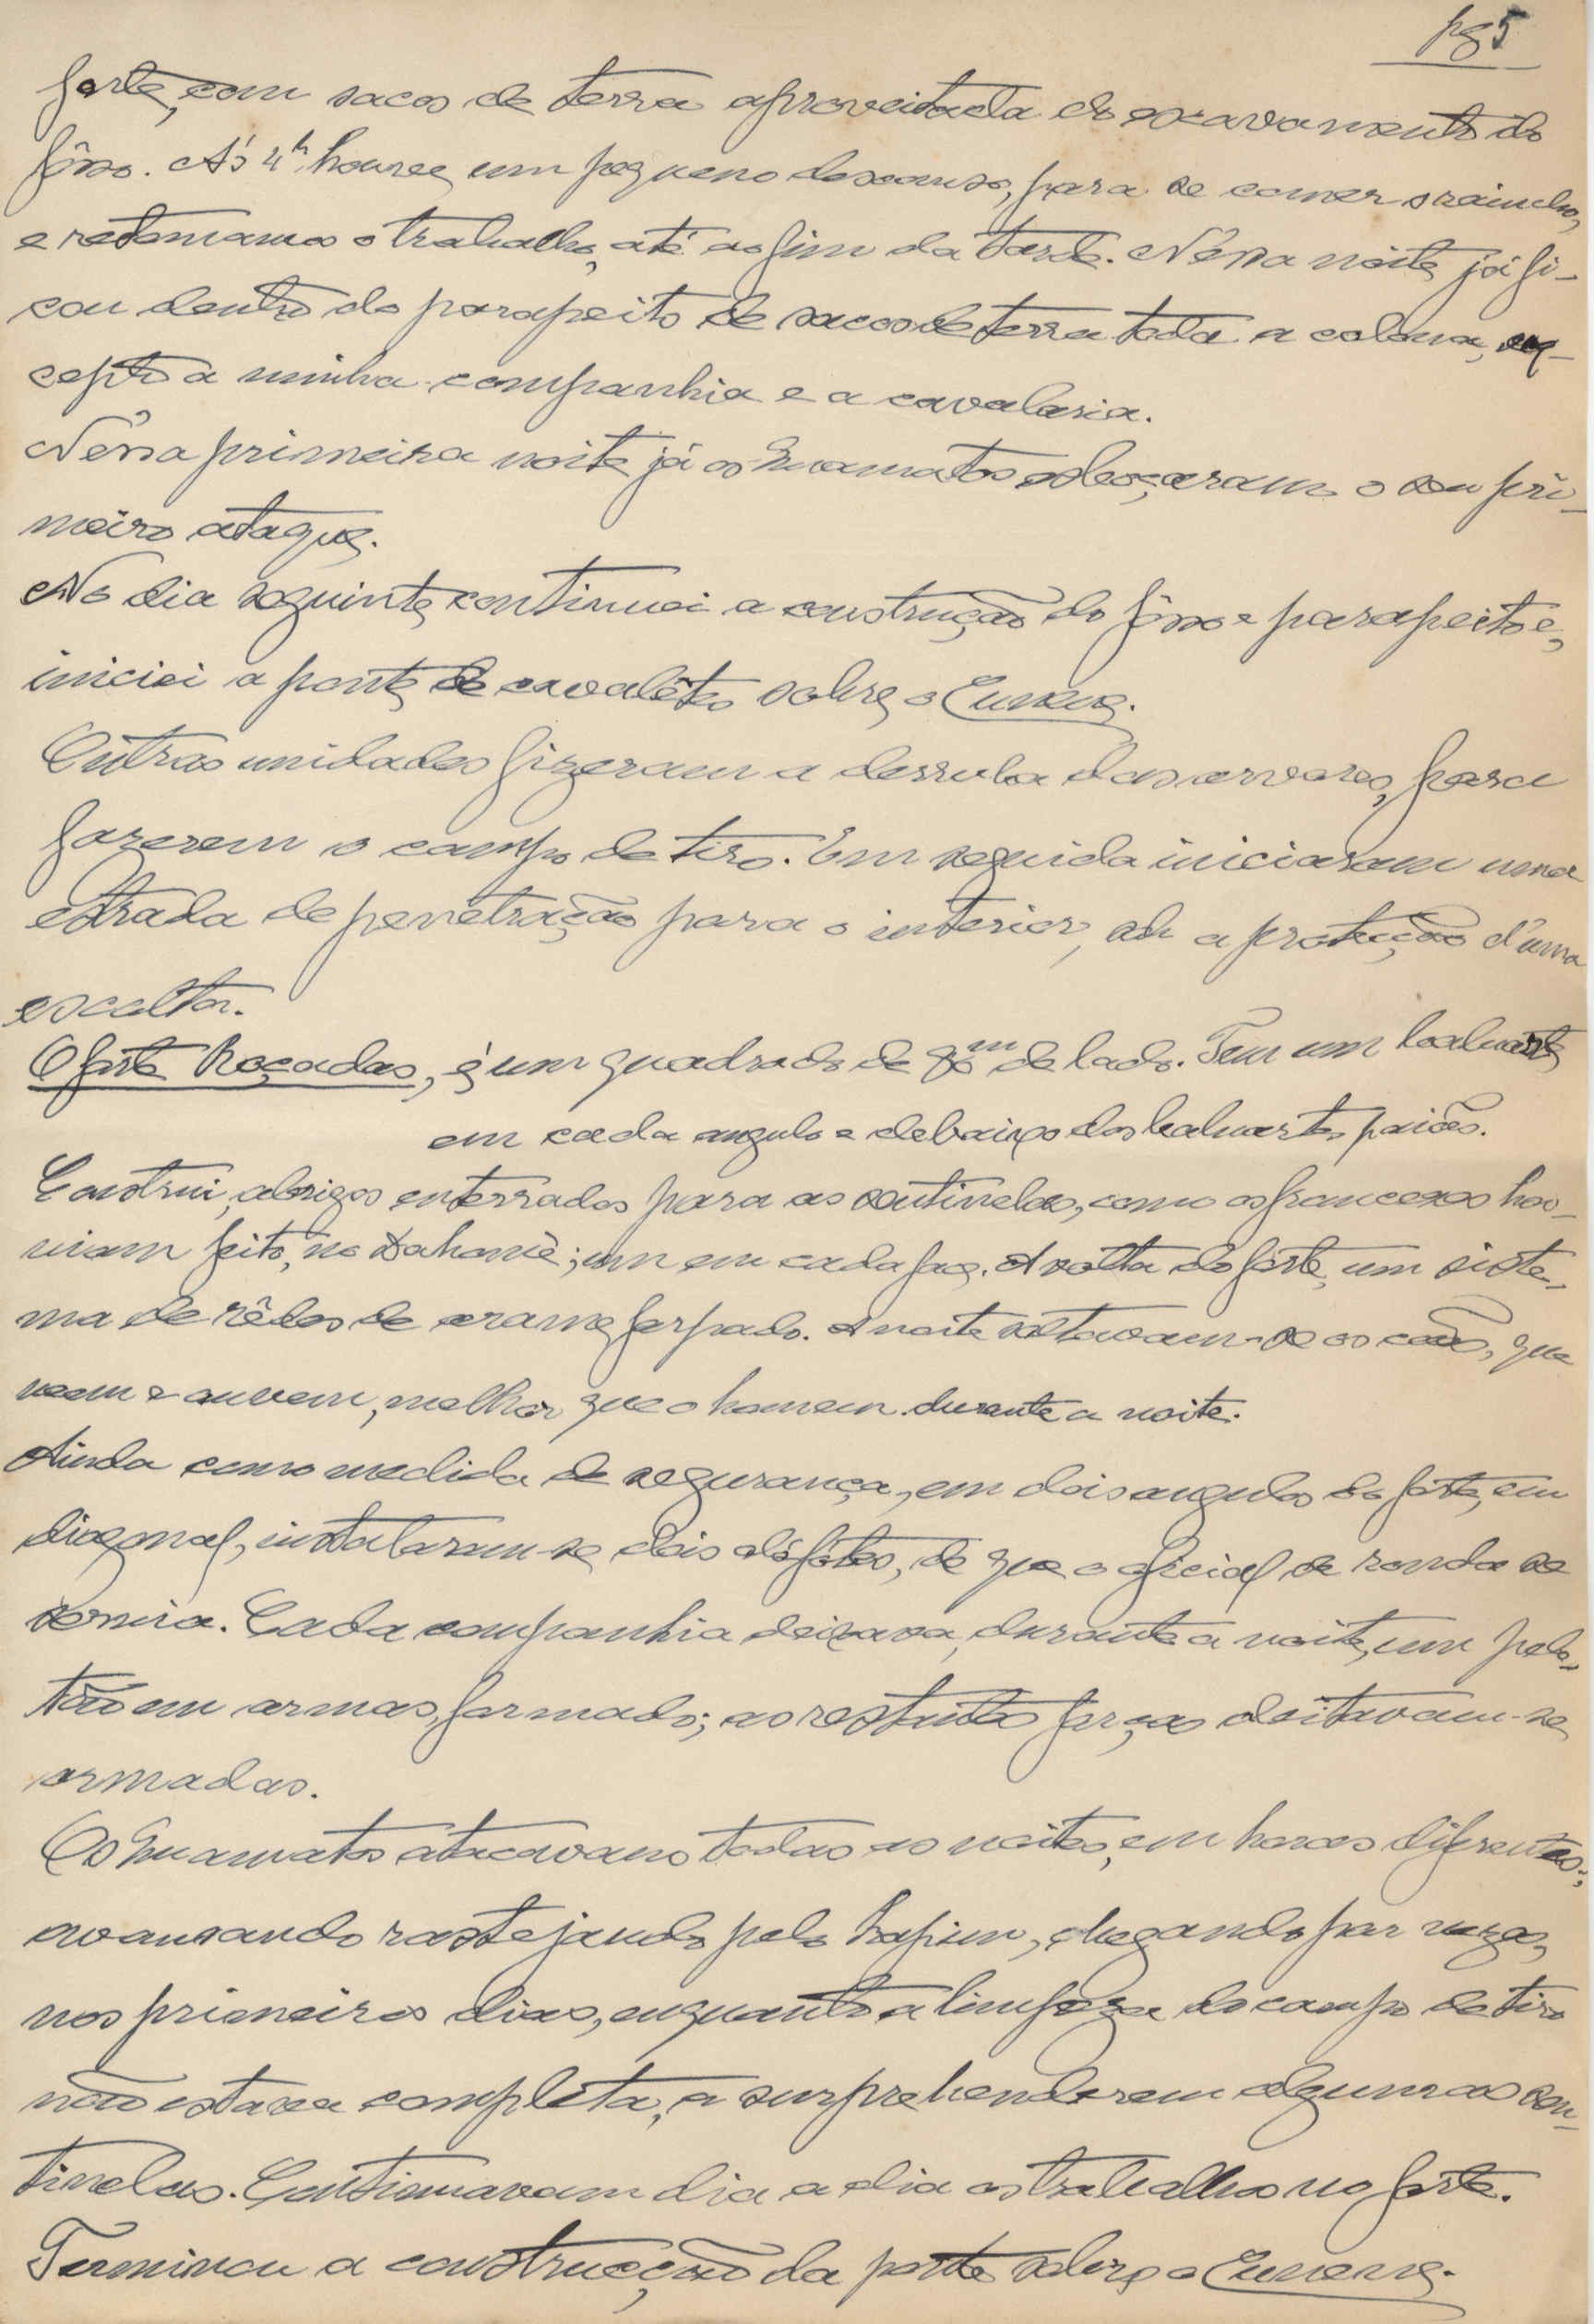 pg 5
forte, com sacos de terra aproveitada do escavamento do
fôsso. Ás 4h houve um pequeno descanso, para se comer o rancho,
e retomamos o trabalho, até ao fim da tarde. N'essa noite já fi-
cou dentro do parapeito de sacos de terra toda a coluna, ex-
cepto a minha companhia e a cavalaria.
N'essa primeira noite já os Cuamatos esboçaram o seu pri-
meiro ataque.
No dia seguinte continuei a construção do fôsso e parapeito e,
iniciei a ponte de cavalêtes sobre o Cunene.
Outras unidades fizeram a derruba das arvores, para
fazerem o campo de tiro. Em seguida iniciaram uma
estrada de penetração para o interior, sob a proteção d'uma
escolta.
O forte Roçadas, é um quadrado de m de lado. Tem um baluarte
em cada angulo e debaixo dos baluartes paióes.
Construi, abrigos enterrados para as sentinelas, como os francezes ha-
viam feito, no Dahomé; um em cada face. Á volta do forte, um siste-
ma de rêdes de arame farpado. Á noite soltavam-se os cães, que
veem e ouvem, melhor que o homem durante a noite.
Ainda como medida de segurança, em dois angulos do forte, em
diagonal, instalaram-se dois holofotes, de que o oficial de ronda se
servia. Cada companhia deixava, durante a noite, um pelo-
tão em armas, formado; as restantes forças deitavam-se
armadas.
Os Cuamatos atacavam todas as noites, em horas diferentes;
avansando rastejando pelo kapim, chegando por vezes,
nos primeiros dias, enquanto a limpeza do campo de tiro
não estava completa, a surprehenderem algumas sen-
tinelas. Continuavam dia a dia os trabalhos no forte.
Terminou a construcção da ponte sobre o Cunene.